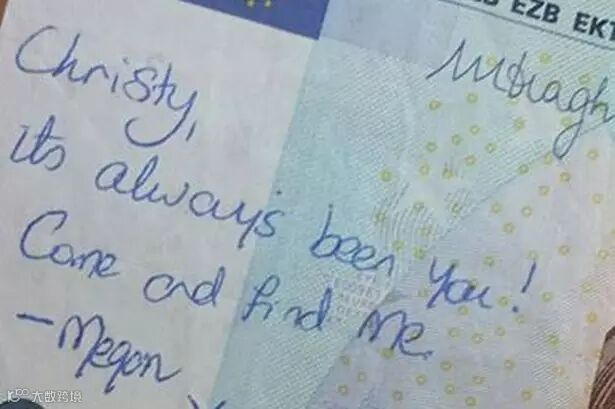 EZB EKT
Christy,
its always been you!
Come and find me.
-Megan
大数跨境